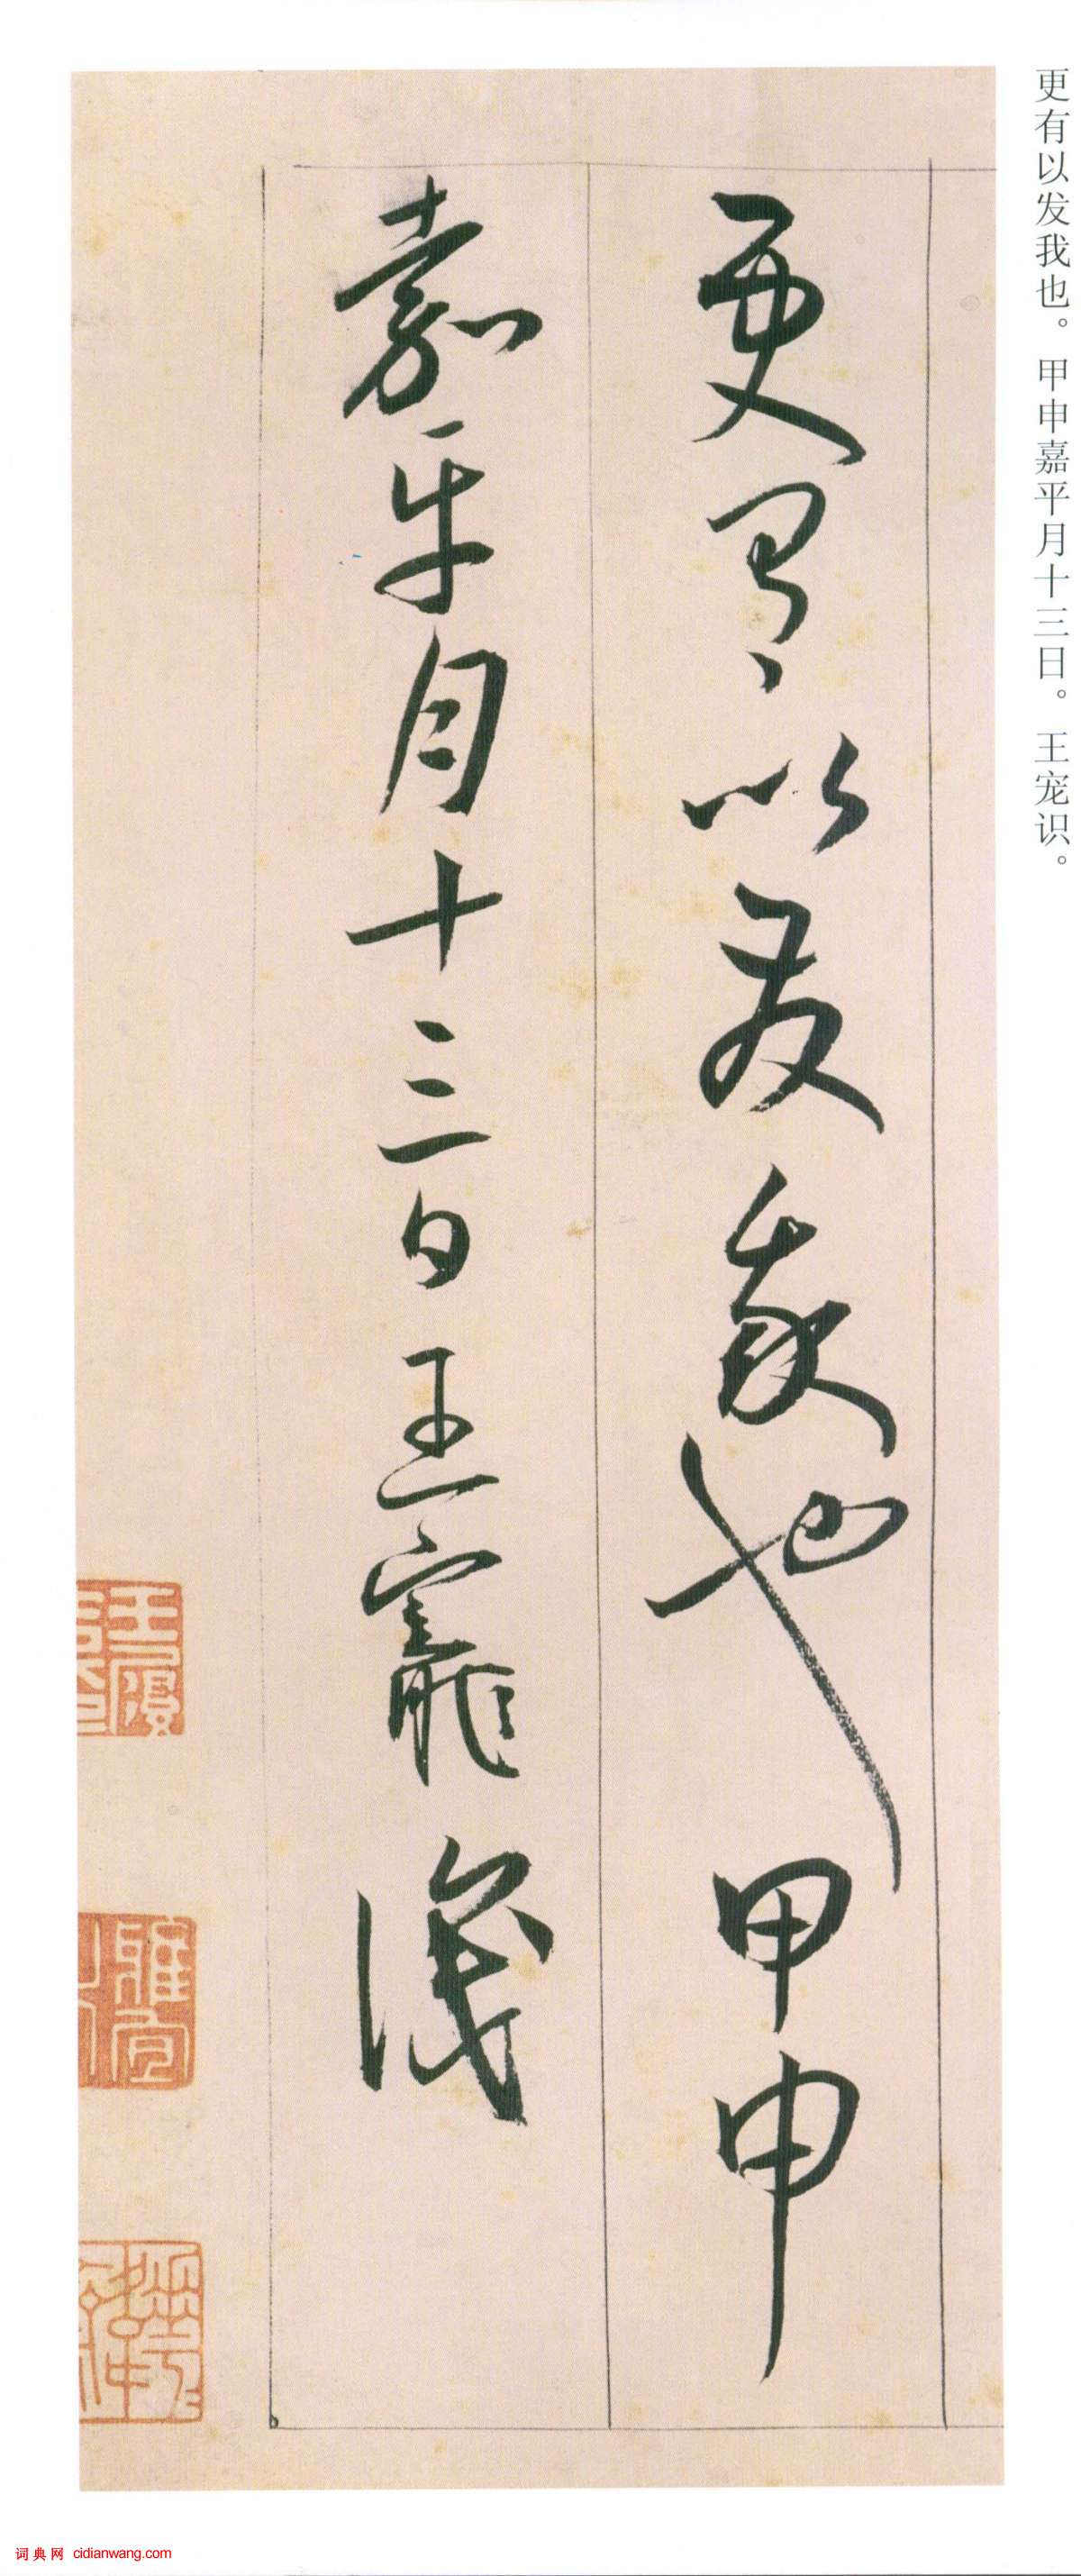 更有以发我也。甲申嘉平月十三日。王宠识。
更有以發我也甲申
嘉平月十三日王寵識
王履
雅宜
词典网 cidianwang.com